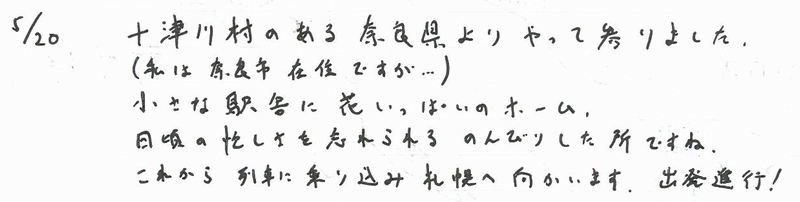 5/20 十津川村のある奈良県よりやって参りました.
(私は奈良市在住ですが…)
小さな駅舎に花いっぱいのホーム.
日頃の忙しさを忘れられるのんびりした所ですね.
これから列車に乗り込み札幌へ向かいます. 出発進行!